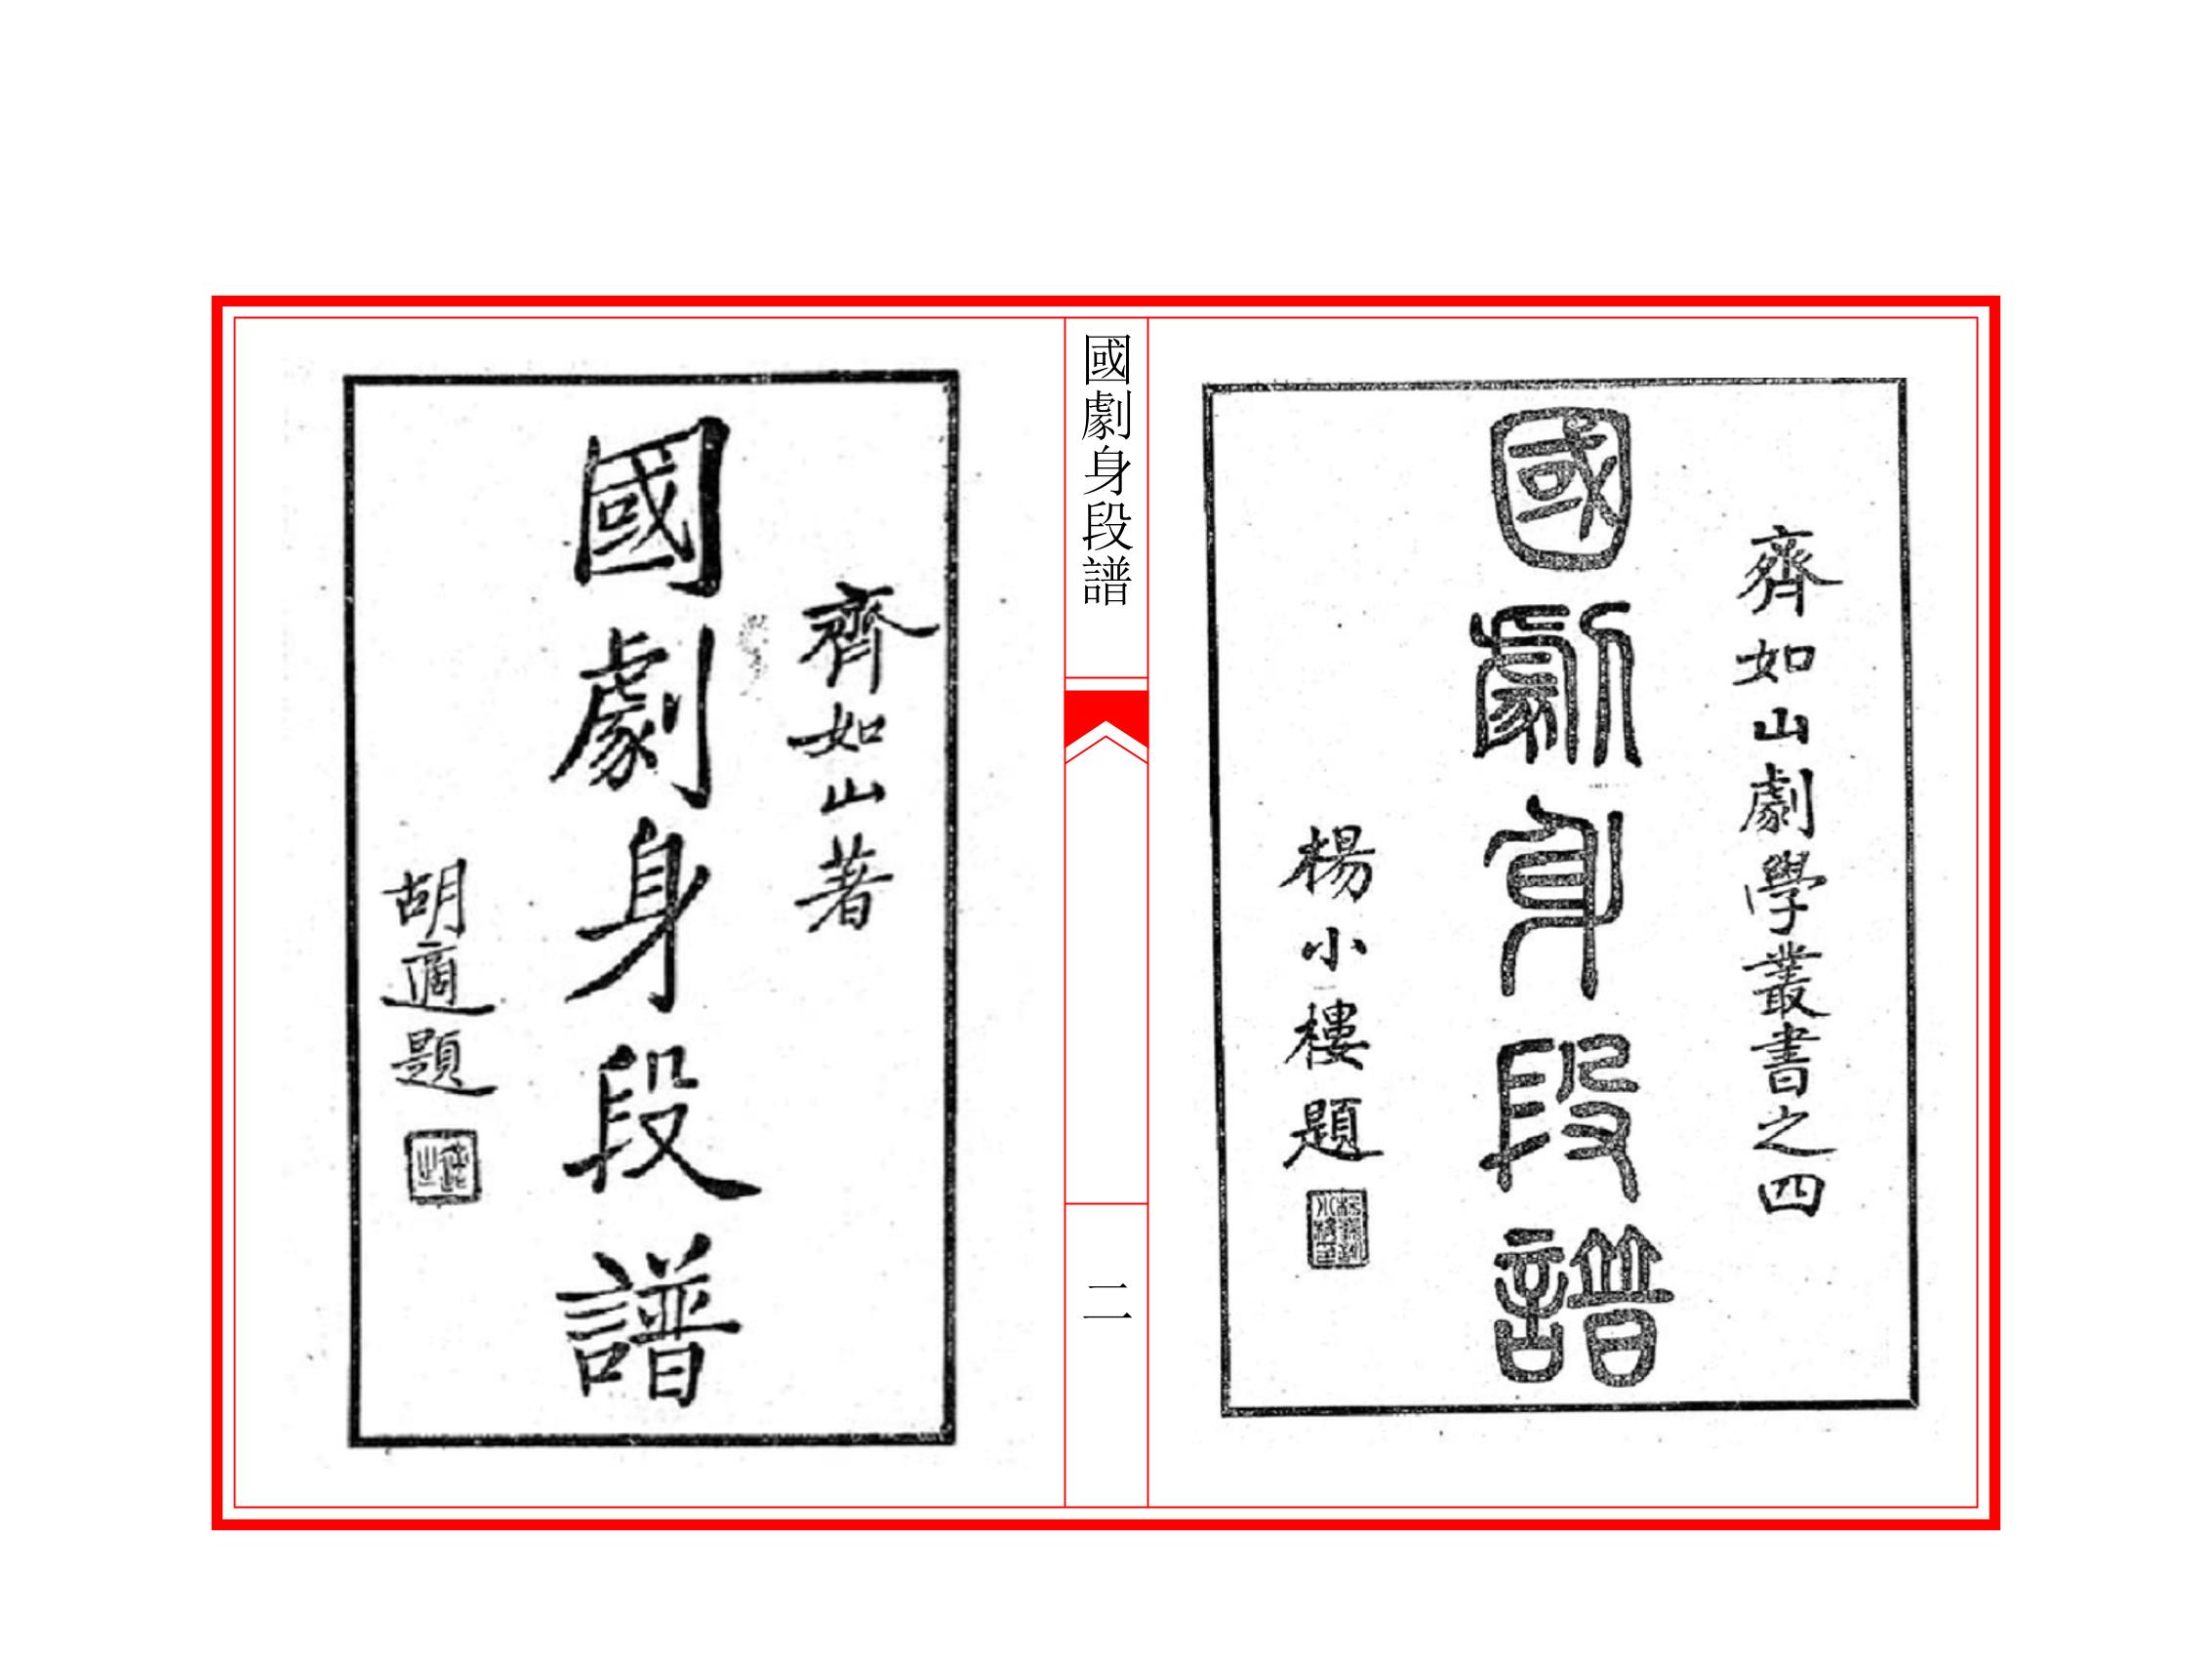 齊如山劇學叢書之四
國劇身段譜
楊小樓題
國劇身段譜
二
齊如山著
國劇身段譜
胡適題